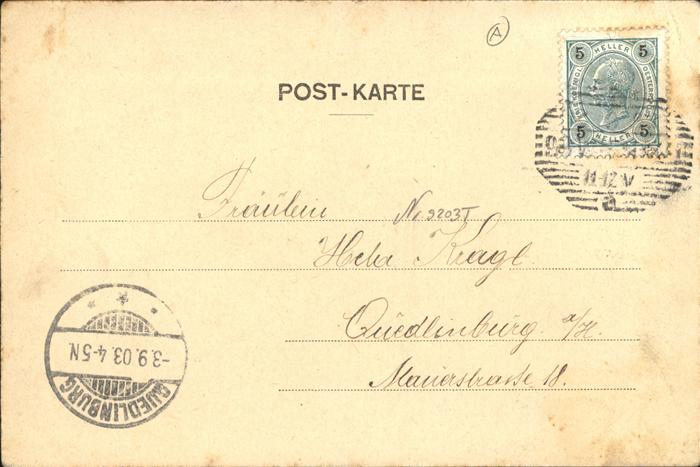 A
5 HELLER 5
5 HELLER 5
POST-KARTE
11-12 V
Fräulein
No 9203T
Kragl
Quedlinburg a/H.
Mauerstrasse 18.
-3.9.03. 4-5N.
QUEDLINBURG